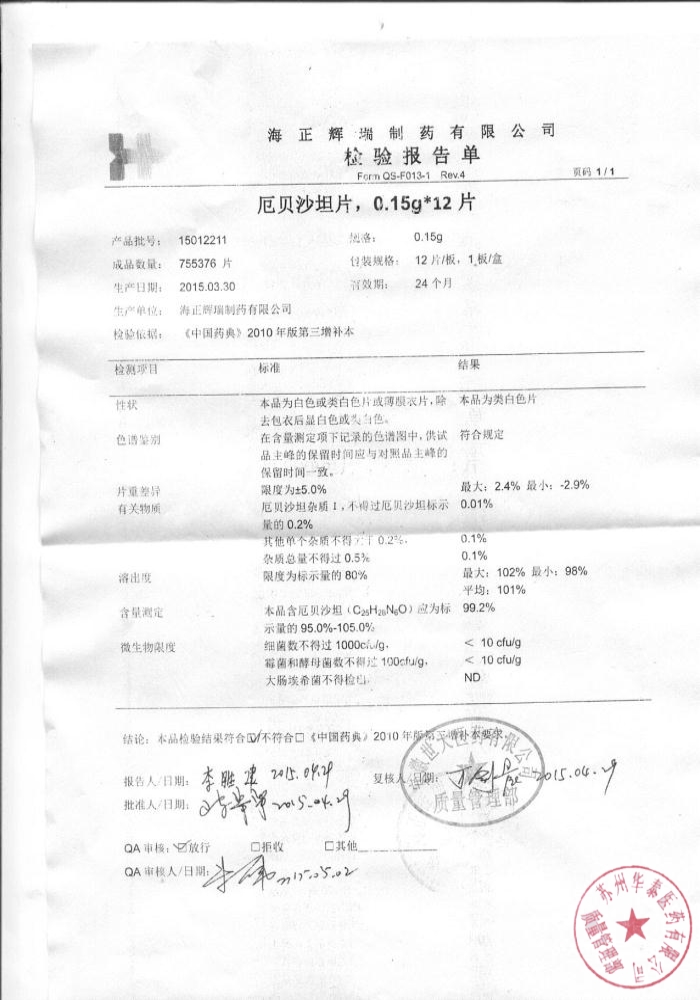 海正辉瑞制药有限公司
检验报告单
Form QS-F013-1 Rev.4
页码 1/1
厄贝沙坦片，0.15g*12 片
产品批号： 15012211 规格： 0.15g
成品数量： 755376 片 包装规格： 12 片/板，1 板/盒
生产日期： 2015.03.30 有效期： 24 个月
生产单位： 海正辉瑞制药有限公司
检验依据： 《中国药典》2010 年版第三增补本
检测项目 标准 结果
性状 本品为白色或类白色片或薄膜衣片，除 本品为类白色片
去包衣后显白色或类白色。
色谱鉴别 在含量测定项下记录的色谱图中，供试 符合规定
品主峰的保留时间应与对照品主峰的
保留时间一致。
片重差异 限度为±5.0% 最大：2.4% 最小：-2.9%
有关物质 厄贝沙坦杂质 I，不得过厄贝沙坦标示 0.01%
量的 0.2%
其他单个杂质不得大于 0.2%。 0.1%
杂质总量不得过 0.5% 0.1%
溶出度 限度为标示量的 80% 最大：102% 最小：98%
平均：101%
含量测定 本品含厄贝沙坦（C25H28N6O）应为标 99.2%
示量的 95.0%-105.0%
微生物限度 细菌数不得过 1000cfu/g， < 10 cfu/g
霉菌和酵母菌数不得过 100cfu/g， < 10 cfu/g
大肠埃希菌不得检出 ND
结论：本品检验结果符合☑/不符合□《中国药典》2010 年版第三增补本要求
报告人/日期： 李胜 2015.04.29 复核人/日期： 2015.04.29
批准人/日期： 2015.04.29
QA 审核：☑放行 □拒收 □其他
QA 审核人/日期： 2015.05.02
医药有限公司
质量管理部
苏州华泰医药有限公司
质量管理部